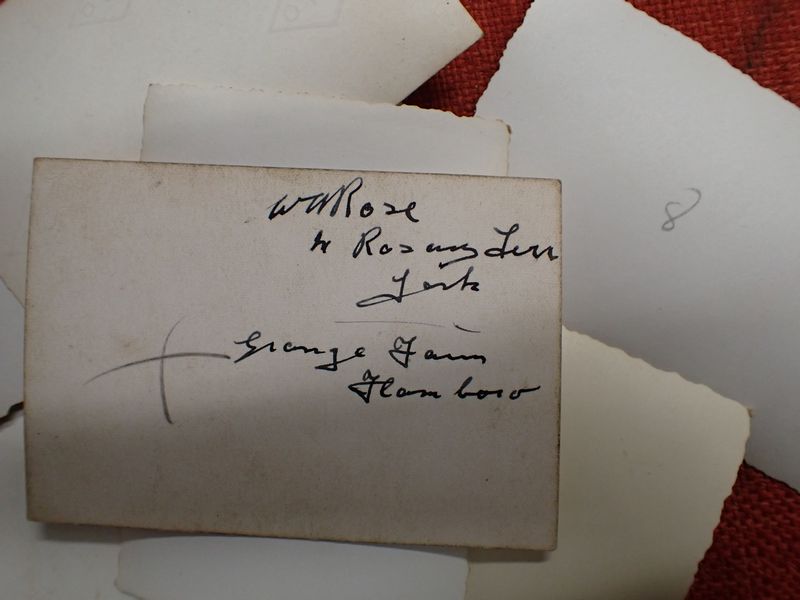 W W Rose
Rosary Terr
York
Grange Farm
Flamboro
8